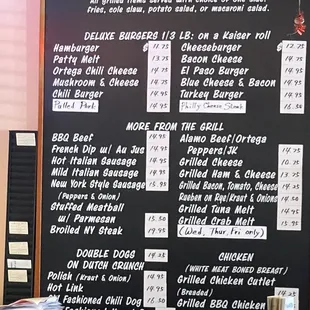 All grilled items served with choice of one side
fries, cole slaw, potato salad, or macaroni salad.
DELUXE BURGERS 1/3 LB: on a Kaiser roll
Hamburger $ 13.75
Patty Melt 13.75
Ortega Chili Cheese 14.75
Mushroom & Cheese 14.75
Chili Burger 14.95
Pulled Pork 14.95
Cheeseburger $ 13.75
Bacon Cheese 14.75
El Paso Burger 14.75
Blue Cheese & Bacon
Turkey Burger
Philly Cheese Steak 16.50
MORE FROM THE GRILL
BBQ Beef 14.95
French Dip w/ Au Jus 14.95
Hot Italian Sausage 14.95
Mild Italian Sausage 14.95
New York Style Sausage 15.95
(Peppers & Onion)
Stuffed Meatball
w/ Parmesan 15.50
Broiled NY Steak 19.95
Alamo Beef/Ortega
Peppers/JK 14.95
Grilled Cheese
Grilled Ham & Cheese
Grilled Bacon, Tomato, Cheese
Reuben on Rye/Kraut & Onions
Grilled Tuna Melt
Grilled Crab Melt
(Wed, Thur, Fri only)
DOUBLE DOGS
ON DUTCH CRUNCH
Polish (Kraut & Onion) 14.95
Hot Link 14.95
Fashioned Chili Dog 16.50
CHICKEN
(WHITE MEAT BONED BREAST)
Grilled Chicken Cutlet
(Breaded)
Grilled BBQ Chicken